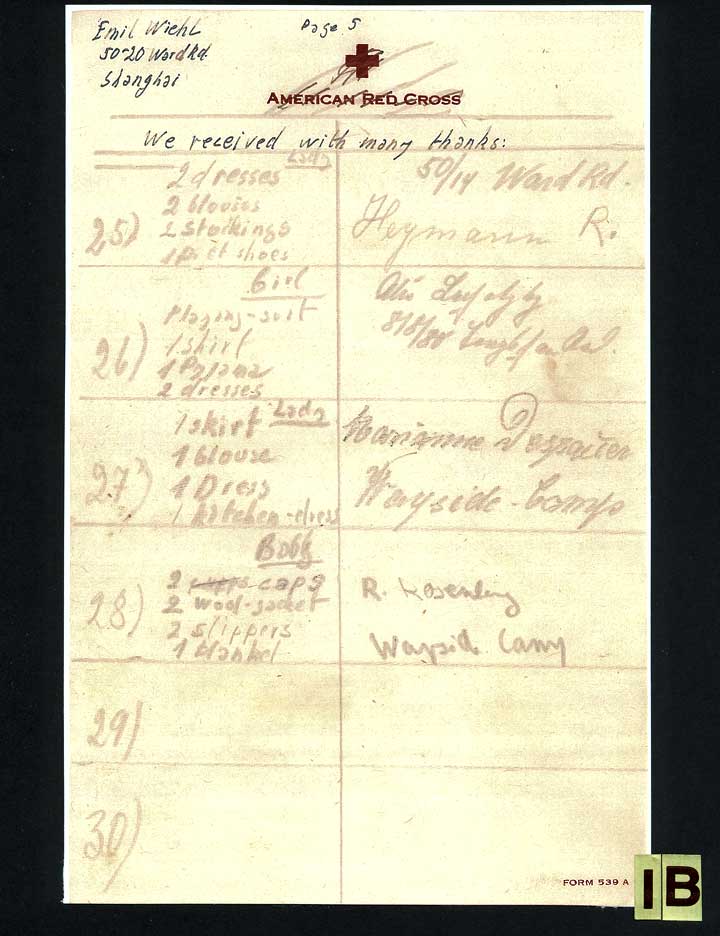 Emil Wiehl
50-20 Ward Rd.
Shanghai
Page 5
AMERICAN RED CROSS
We received with many thanks:
25)
Lady
2 dresses
2 blouses
2 stockings
shoes
50/14 Ward Rd.
Heymann R.
26)
Girl
Playing-suit
1 skirt
1 Pyjama
2 dresses
818/88
27)
Lady
1 skirt
1 blouse
1 Dress
1 kitchen-dress
Marianne
Wayside-Camp
28)
Baby
2 caps
2 wool-jacket
2 slippers
1
R. Rosenberg
Wayside Camp
29)
30)
FORM 539 A
1B